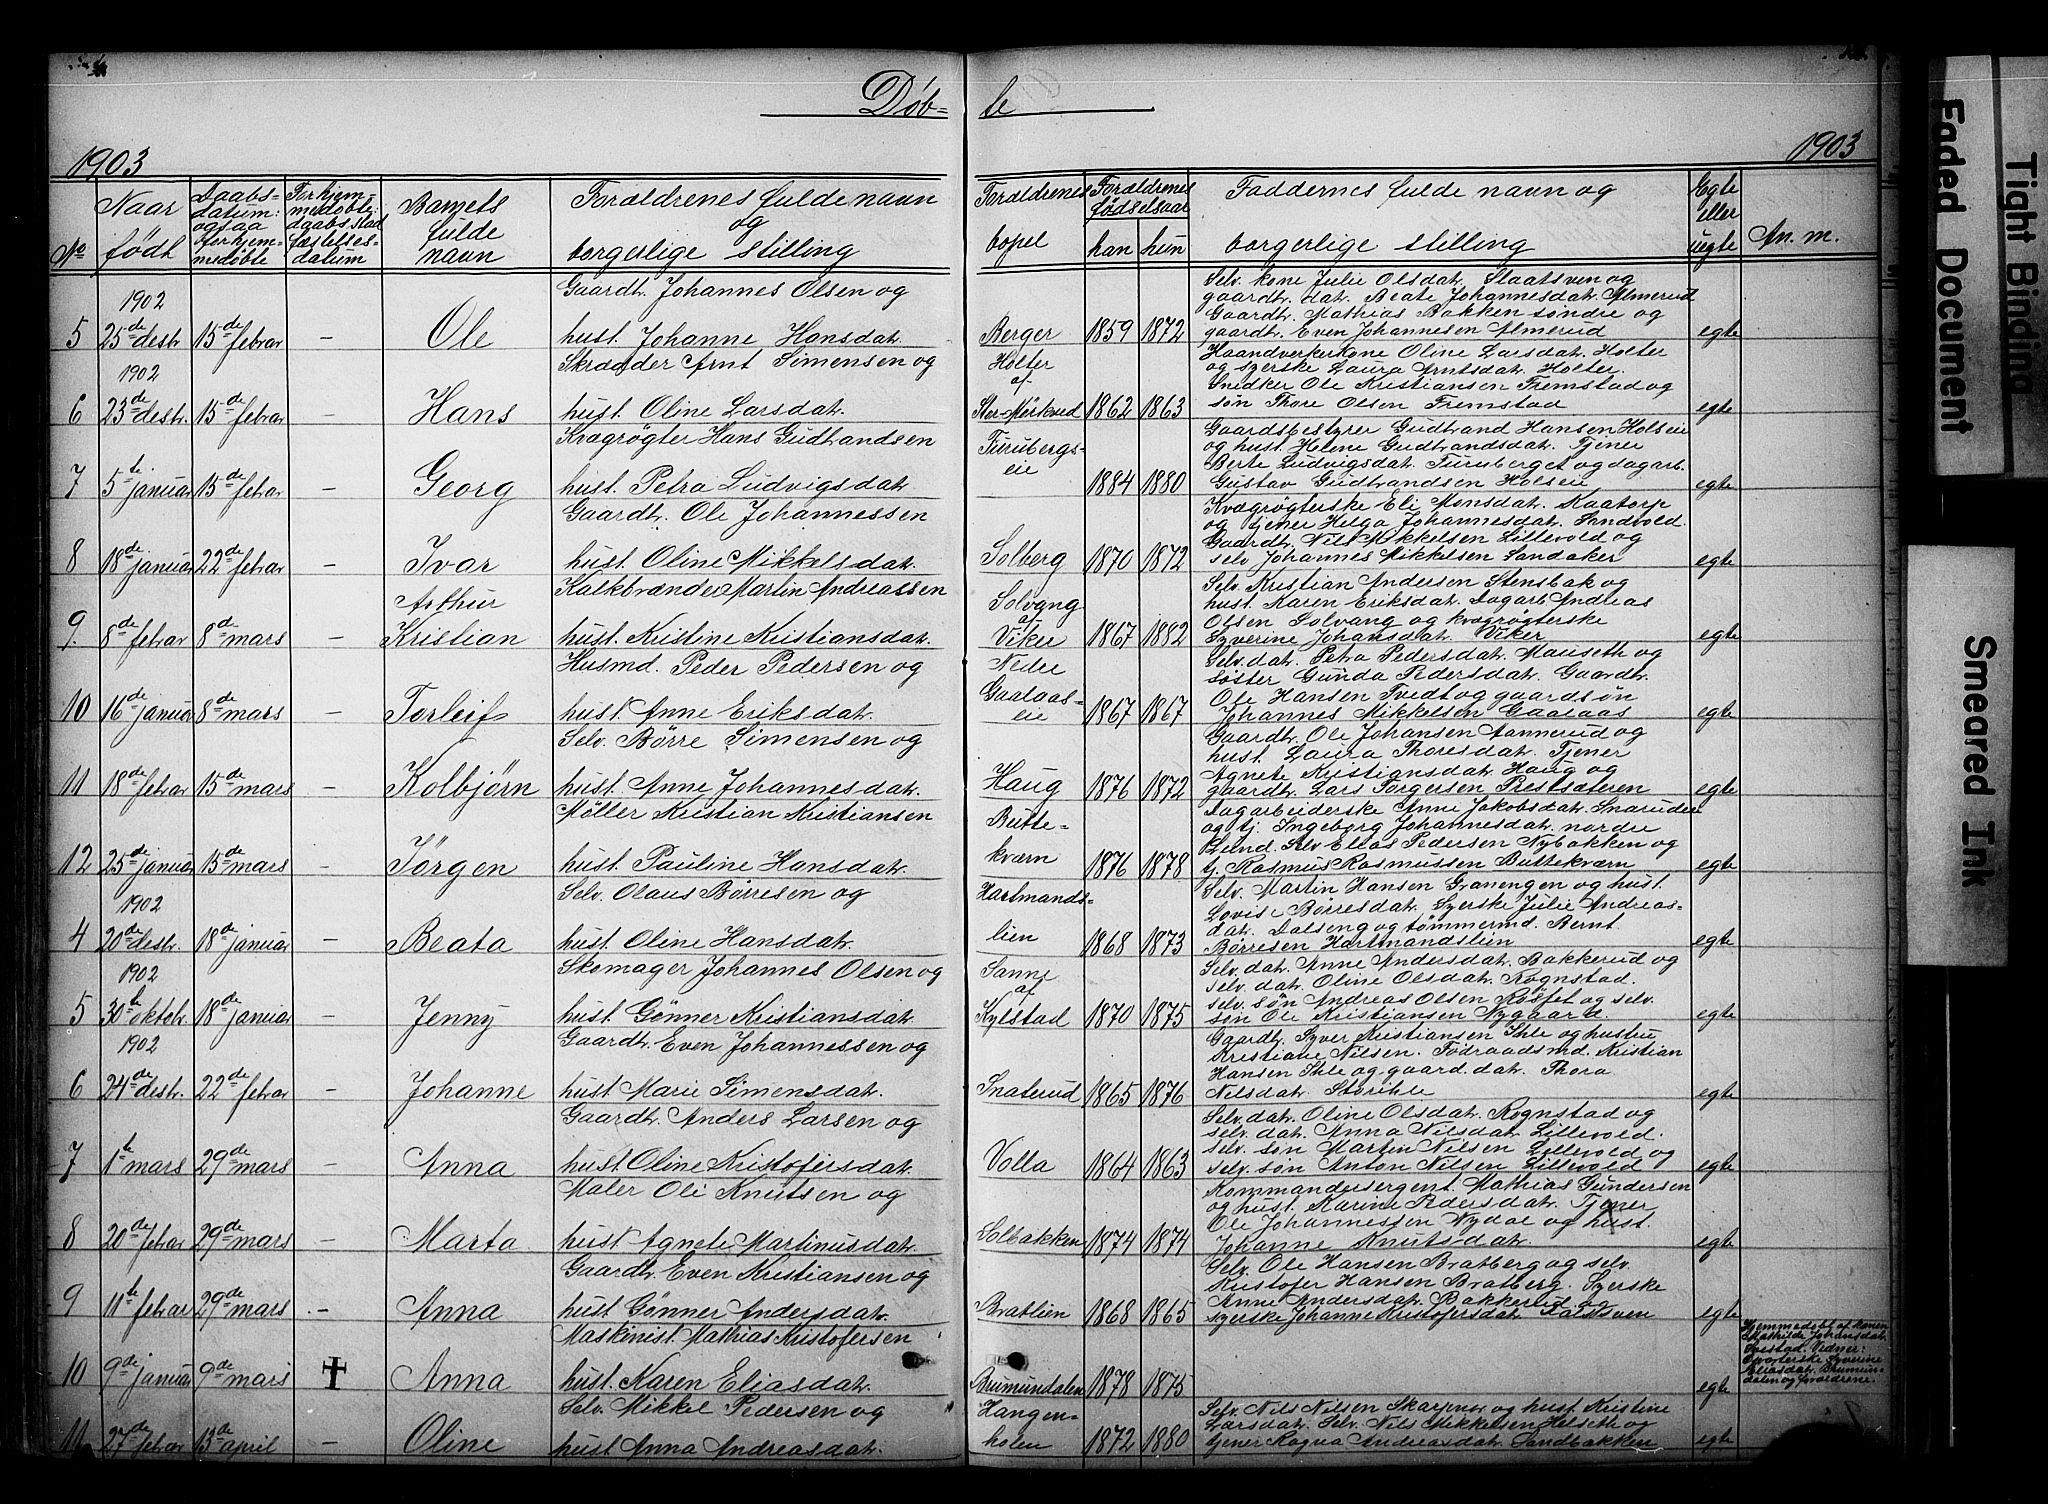 Döb=
te
1903
1903
No
Naar
födt
Daabs-
datum:
ogsaa
for hjem-
medøbte
For hjem-
medøbte:
daabs stad
fæstelses-
datum
Barnets
fulde
navn
Forældrenes fulde navn
og
borgerlige stilling
Forældrenes
bopel
Forældrenes
fødselsaar
han hun
Faddernes fulde navn og
borgerlige stilling
Egte
eller
uegte
An. m.
1902
5 25de destr. 15de februar – Ole
Gaardbr. Johannes Olsen og
hust. Johanne Hansdatr.
Berger 1859 1872
Selv. kone Julie Olsdatr. Staatsven og
gaardbr. datr. Beate Johannesdatr. Almerud
Gaardbr. Mathias Bakken søndre og
gaardbr. Even Johannesen Almerud
egte
1902
6 23de destr. 15de februar Hans
Skrædder Arnt Simensen og
hust. Oline Larsdatr.
Holter
af
Stor-Mörkved 1862 1863
Haandverkerkone Oline Larsdatr. Holter
og syerske Laura Arntsdatr. Holter.
Snedker Ole Kristiansen Fremstad og
søn Thore Olsen Fremstad
egte
7 5te januar 15de februar – Georg
Kvægrøgter Hans Gudbrandsen
hust. Petra Ludvigsdatr.
Furubergs-
eie 1884 1880
Gaardsbestyrer Gudbrand Hansen Holseie
og hust. Helene Gudbrandsdatr. Tjener
Berte Ludvigsdatr. Furuberget og dagarb.
Gustav Gudbrandsen Holseie
egte
8 18de januar 22de februar – Ivar
Gaardbr. Ole Johannessen
hust. Oline Mikkelsdatr.
Solberg 1870 1872
Kvægrøgterske Eli Monsdatr. Kaatorp
og tjener Helga Johannesdatr. Sandvold.
Gaardbr. Nils Mikkelsen Lillevold og
selv Johannes Mikkelsen Sandaker
egte
9. 8de februar 8de mars – Arthur
Kristian
Kalkbrænder Martin Andreassen
hust. Kristine Kristiansdatr.
Solvang
af
Viker 1867 1882
Selv. Kristian Andersen Stensbak og
hust. Karen Eriksdatr. Dagarb. Andreas
Olsen Solvang og kvægrøgterske
Syverine Johansdatr. Viker
egte
10 16de januar 8de mars – Torleif
Husmd. Peder Pedersen og
hust. Anne Eriksdatr.
Nedre
Gaalaas-
eie 1867 1867
Selv. datr. Petra Pedersdatr. Mauseth og
søster Gunda Pedersdatr. Gaardbr.
Ole Hansen Tvedt og gaardsøn
Johannes Mikkelsen Gaalaas
egte
11 18de februar 15de mars – Kolbjörn
Selv. Börre Simensen og
hust. Anne Johannesdatr.
Haug 1876 1872
Gaardbr. Ole Johansen Aannerud og
hust. Laura Thoresdatr. Tjener
Agnete Kristiansdatr. Haug og
gaardbr. Lars Torgersen Prestsæteren
egte
12 25de januar 15de mars – Jörgen
Möller Kristian Kristiansen
hust. Pauline Hansdatr.
Butte-
kværn 1876 1878
Dagarbeiderske Anne Jakobsdatr. Snaruden
og tj. Ingeborg Johannesdatr. nordre
Lund. Selv Elias Pedersen Nybakken og
tj. Rasmus Rasmussen Buttekværn
egte
1902
4 20de destr. 18de januar – Beata
Selv. Olaus Börresen og
hust. Oline Hansdatr.
Hartmands-
lien 1868 1873
Selv. Martin Hansen Granengen og hust.
Lovise Börresdatr. Syerske Julie Andreas-
datr. Dalseng og tømmermd. Bernt
Börresen Hartmandslien
egte
1902
5 30te oktobr. 18de januar – Jenny
Skomager Johannes Olsen og
hust. Gönner Kristiansdatr.
Sanne
af
Kylstad 1870 1875
Selv. datr. Anne Andersdatr. Bakkerud og
selv. datr. Oline Olsdatr. Rognstad.
selv. søn Andreas Olsen Röfset og selv.
søn Ole Kristiansen Nygaard.
egte
1902
6 24de destr. 22de februar – Johanne
Gaardbr. Even Johannessen og
hust. Marie Simensdatr.
Snaterud 1865 1876
Gaardbr. Syver Kristiansen Ihle og hustru
Kristiane Nilsen. Födraadsmd. Kristian
Hansen Ihle og gaard. datr. Thora
Nilsdatr. Storihle
egte
7 1te mars 29de mars – Anna
Gaardbr. Anders Larsen og
hust. Oline Kristofersdatr.
Volla 1864 1863
Selv. datr. Oline Olsdatr. Rognstad og
selv. datr. Anna Nilsdatr. Lillevold.
selv. søn Martin Nilsen Lillevold og
selv. søn Anton Nilsen Lillevold
egte
8 20de februar 29de mars – Marta
Maler Ole Knutsen og
hust. Agnete Martinusdatr.
Solbakken 1874 1874
Kommandersergent. Mathias Gundersen
og hust. Karine Pedersdatr. Tjener
Ole Johannessen Nydal og hust.
Johanne Knutsdatr.
egte
9 11te februar 29de mars – Anna
Gaardbr. Even Kristiansen og
hust. Gönner Andersdatr.
Bratlien 1868 1865
Selv. Ole Hansen Bratberg og selv.
Kristofer Hansen Bratberg. Syerske
Anne Andersdatr. Bakkerud og
syerske Johanne Kristofersdatr. Staatsven
egte
10 9de januar 9de mars ✝ Anna
Maskinist. Mathias Kristofersen
hust. Karen Eliasdatr.
Brumundalen 1878 1875
egte
Hjemmedøbt af konen
Mathilde Johansdatr.
Vidner:
Syverine
Eliasdatr. Brumun-
dalen og forældrene.
11 27de februar 13de april – Oline
Selv. Mikkel Pedersen og
hust. Anna Andreasdatr.
Hangen-
holen 1872 1880
Selv. Nils Nilsen Skarpnor og hust. Kristine
Larsdatr. Selv. Nils Mikkelsen Helseth og
tjener Ragna Andreasdatr. Sandbakken
egte
Tight Binding
Faded Document
Smeared Ink